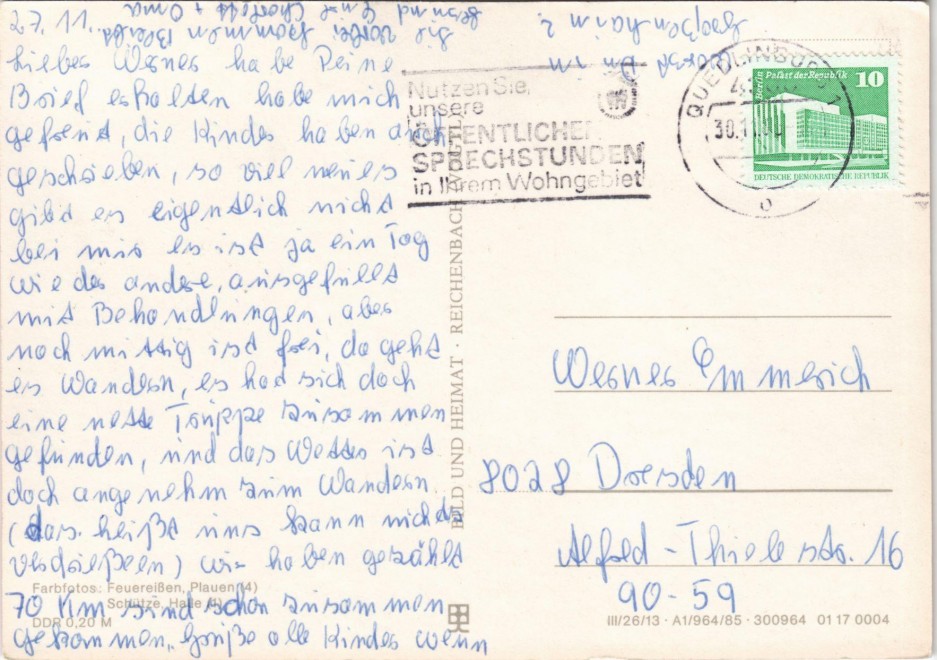 27.11.
Liebes Werner habe Deine
Brief erhalten habe mich
gefreut, die Kinder haben auch
geschrieben, so viel neues
gibt es eigentlich nicht
bei mir es ist ja ein Tag
wie der andere, ausgefüllt
mit Behandlungen, aber
nach mittig ist frei, da geht
es Wandern, es hat sich doch
eine nette Truppe zusammen
gefunden, und das Wetter ist
doch angenehm zum Wandern
(das. heißt uns kann nichts
verdrießen) wir haben gezählt
70 Km sind schon zusammen
gekommen. Grüße alle Kinder wenn
sie vorbei kommen Bleibt
gesund Charlott + Oma
Nutzen Sie,
unsere
ÖFFENTLICHEN
SPRECHSTUNDEN
in Ihrem Wohngebiet
QUEDLINBURG 1
30.11.
Berlin Palast der Republik 10
DEUTSCHE DEMOKRATISCHE REPUBLIK
BILD UND HEIMAT · REICHENBACH (VOGTL)
Werner Emmerich
8028 Dresden
Alfred-Thiele str. 16
90-59
Farbfotos: Feuereißen, Plauen (4)
Schütze, Halle
DDR 0,20 M
III/26/13 · A1/964/85 · 300964 01 17 0004